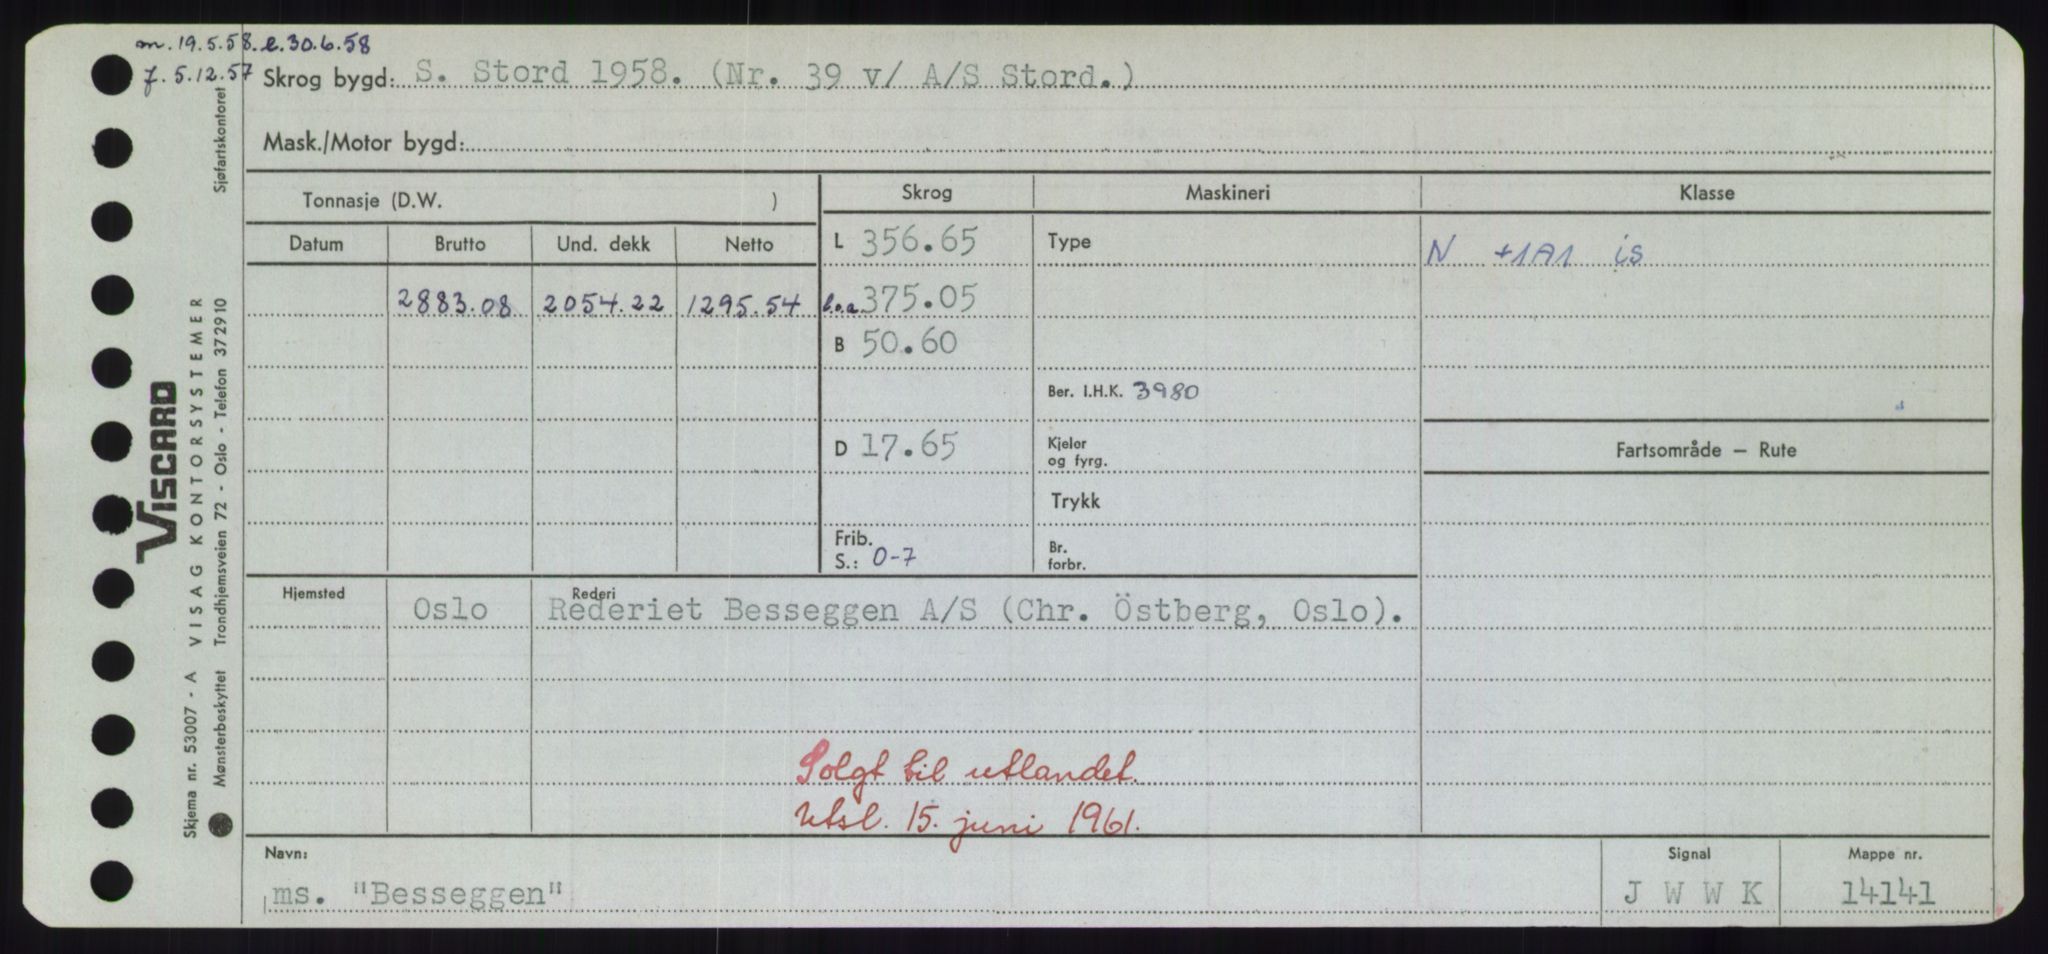 m. 19.5.58. e. 30.6.58
f. 5.12.57
Skrog bygd: S. Stord 1958. (Nr. 39 v/ A/S Stord.)
Mask./Motor bygd:
Tonnasje (D.W. )
Skrog
Maskineri
Klasse
Datum
Brutto
Und. dekk
Netto
L 356.65
Type
N +1A1 is
2883.08
2054.22
1295.54
l.o.a. 375.05
B 50.60
Ber. I.H.K. 3980
D 17.65
Kjeler
og fyrg.
Fartsområde – Rute
Trykk
Frib.
S.: 0-7
Br.
forbr.
Hjemsted
Oslo
Rederi
Rederiet Besseggen A/S (Chr. Östberg, Oslo).
Solgt til utlandet.
Utsl. 15. juni 1961.
Navn:
ms. "Besseggen"
Signal
J W W K
Mappe nr.
14141
VISCARD
Skjema nr. 53007 - A VISAG KONTORSYSTEMER
Mønsterbeskyttet Trondhjemsveien 72 - Oslo - Telefon 372910 Sjøfartskontoret